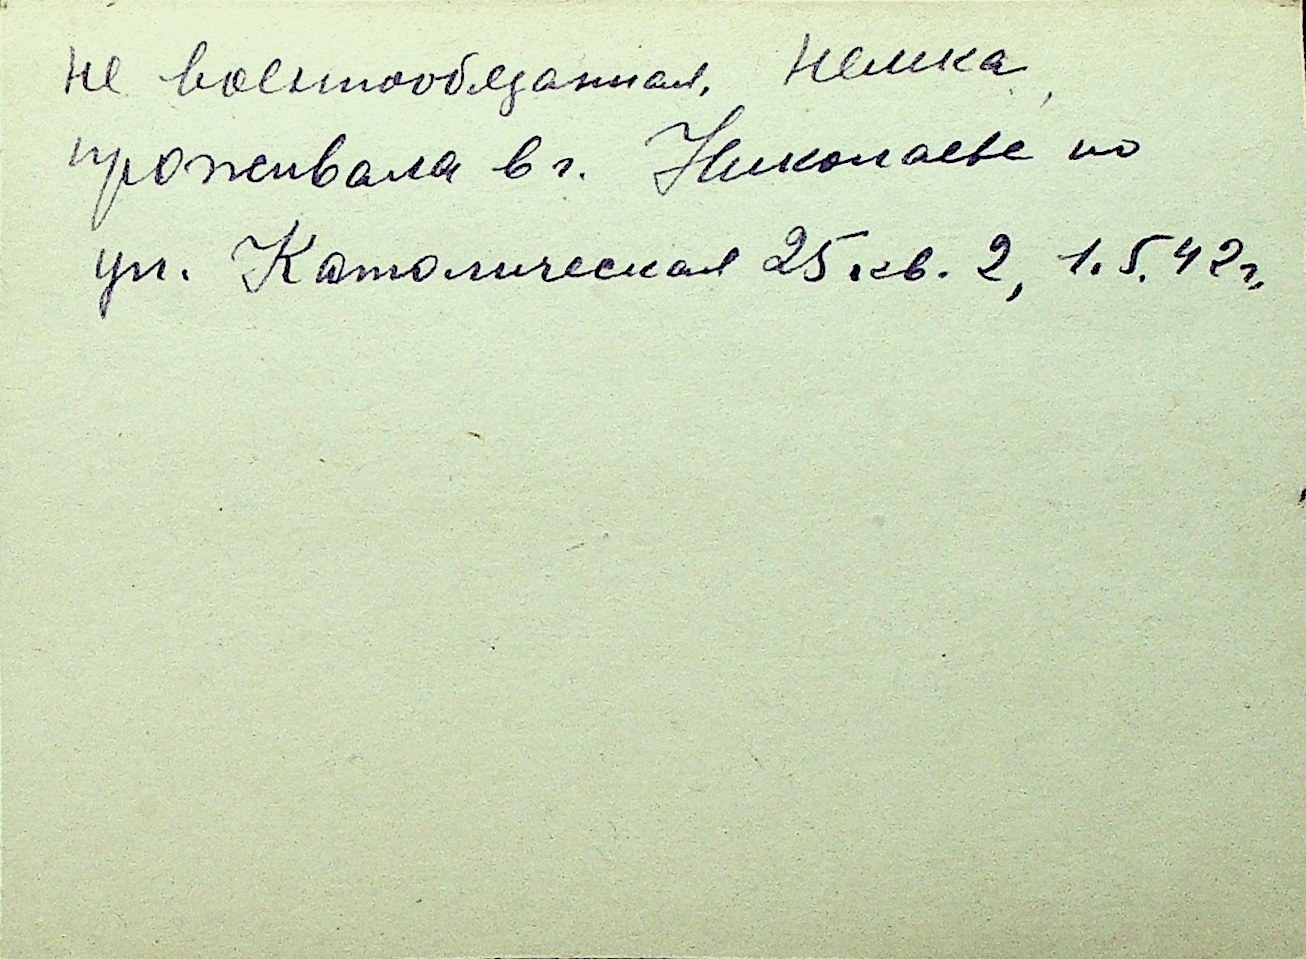 не военнообязанная. Немка,
проживала в г. Николаеве по
ул. Католическая 25 кв. 2, 1.5.42 г.